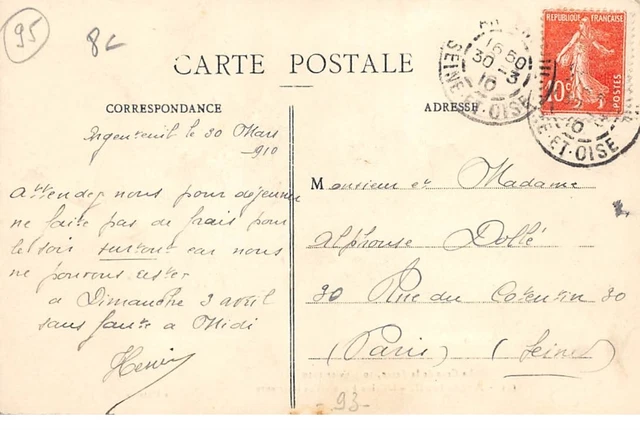 95
8c
CARTE POSTALE
REPUBLIQUE FRANÇAISE
10c
POSTES
16 50
30-3
10
SEINE-ET-OISE
CORRESPONDANCE
ADRESSE
Argenteuil le 30 Mars
1910
Attendez nous pour déjeuner
ne faite pas de frais pour
le soir surtout car nous
ne pouvons rester
a Dimanche 3 avril
sans faute a Midi
Henri
Monsieur et Madame
Alphonse Dollé
30 Rue du Cotentin 30
(Paris) (Seine)
-93-